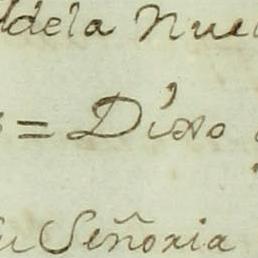 dela Nue
= Dixo
Señoria